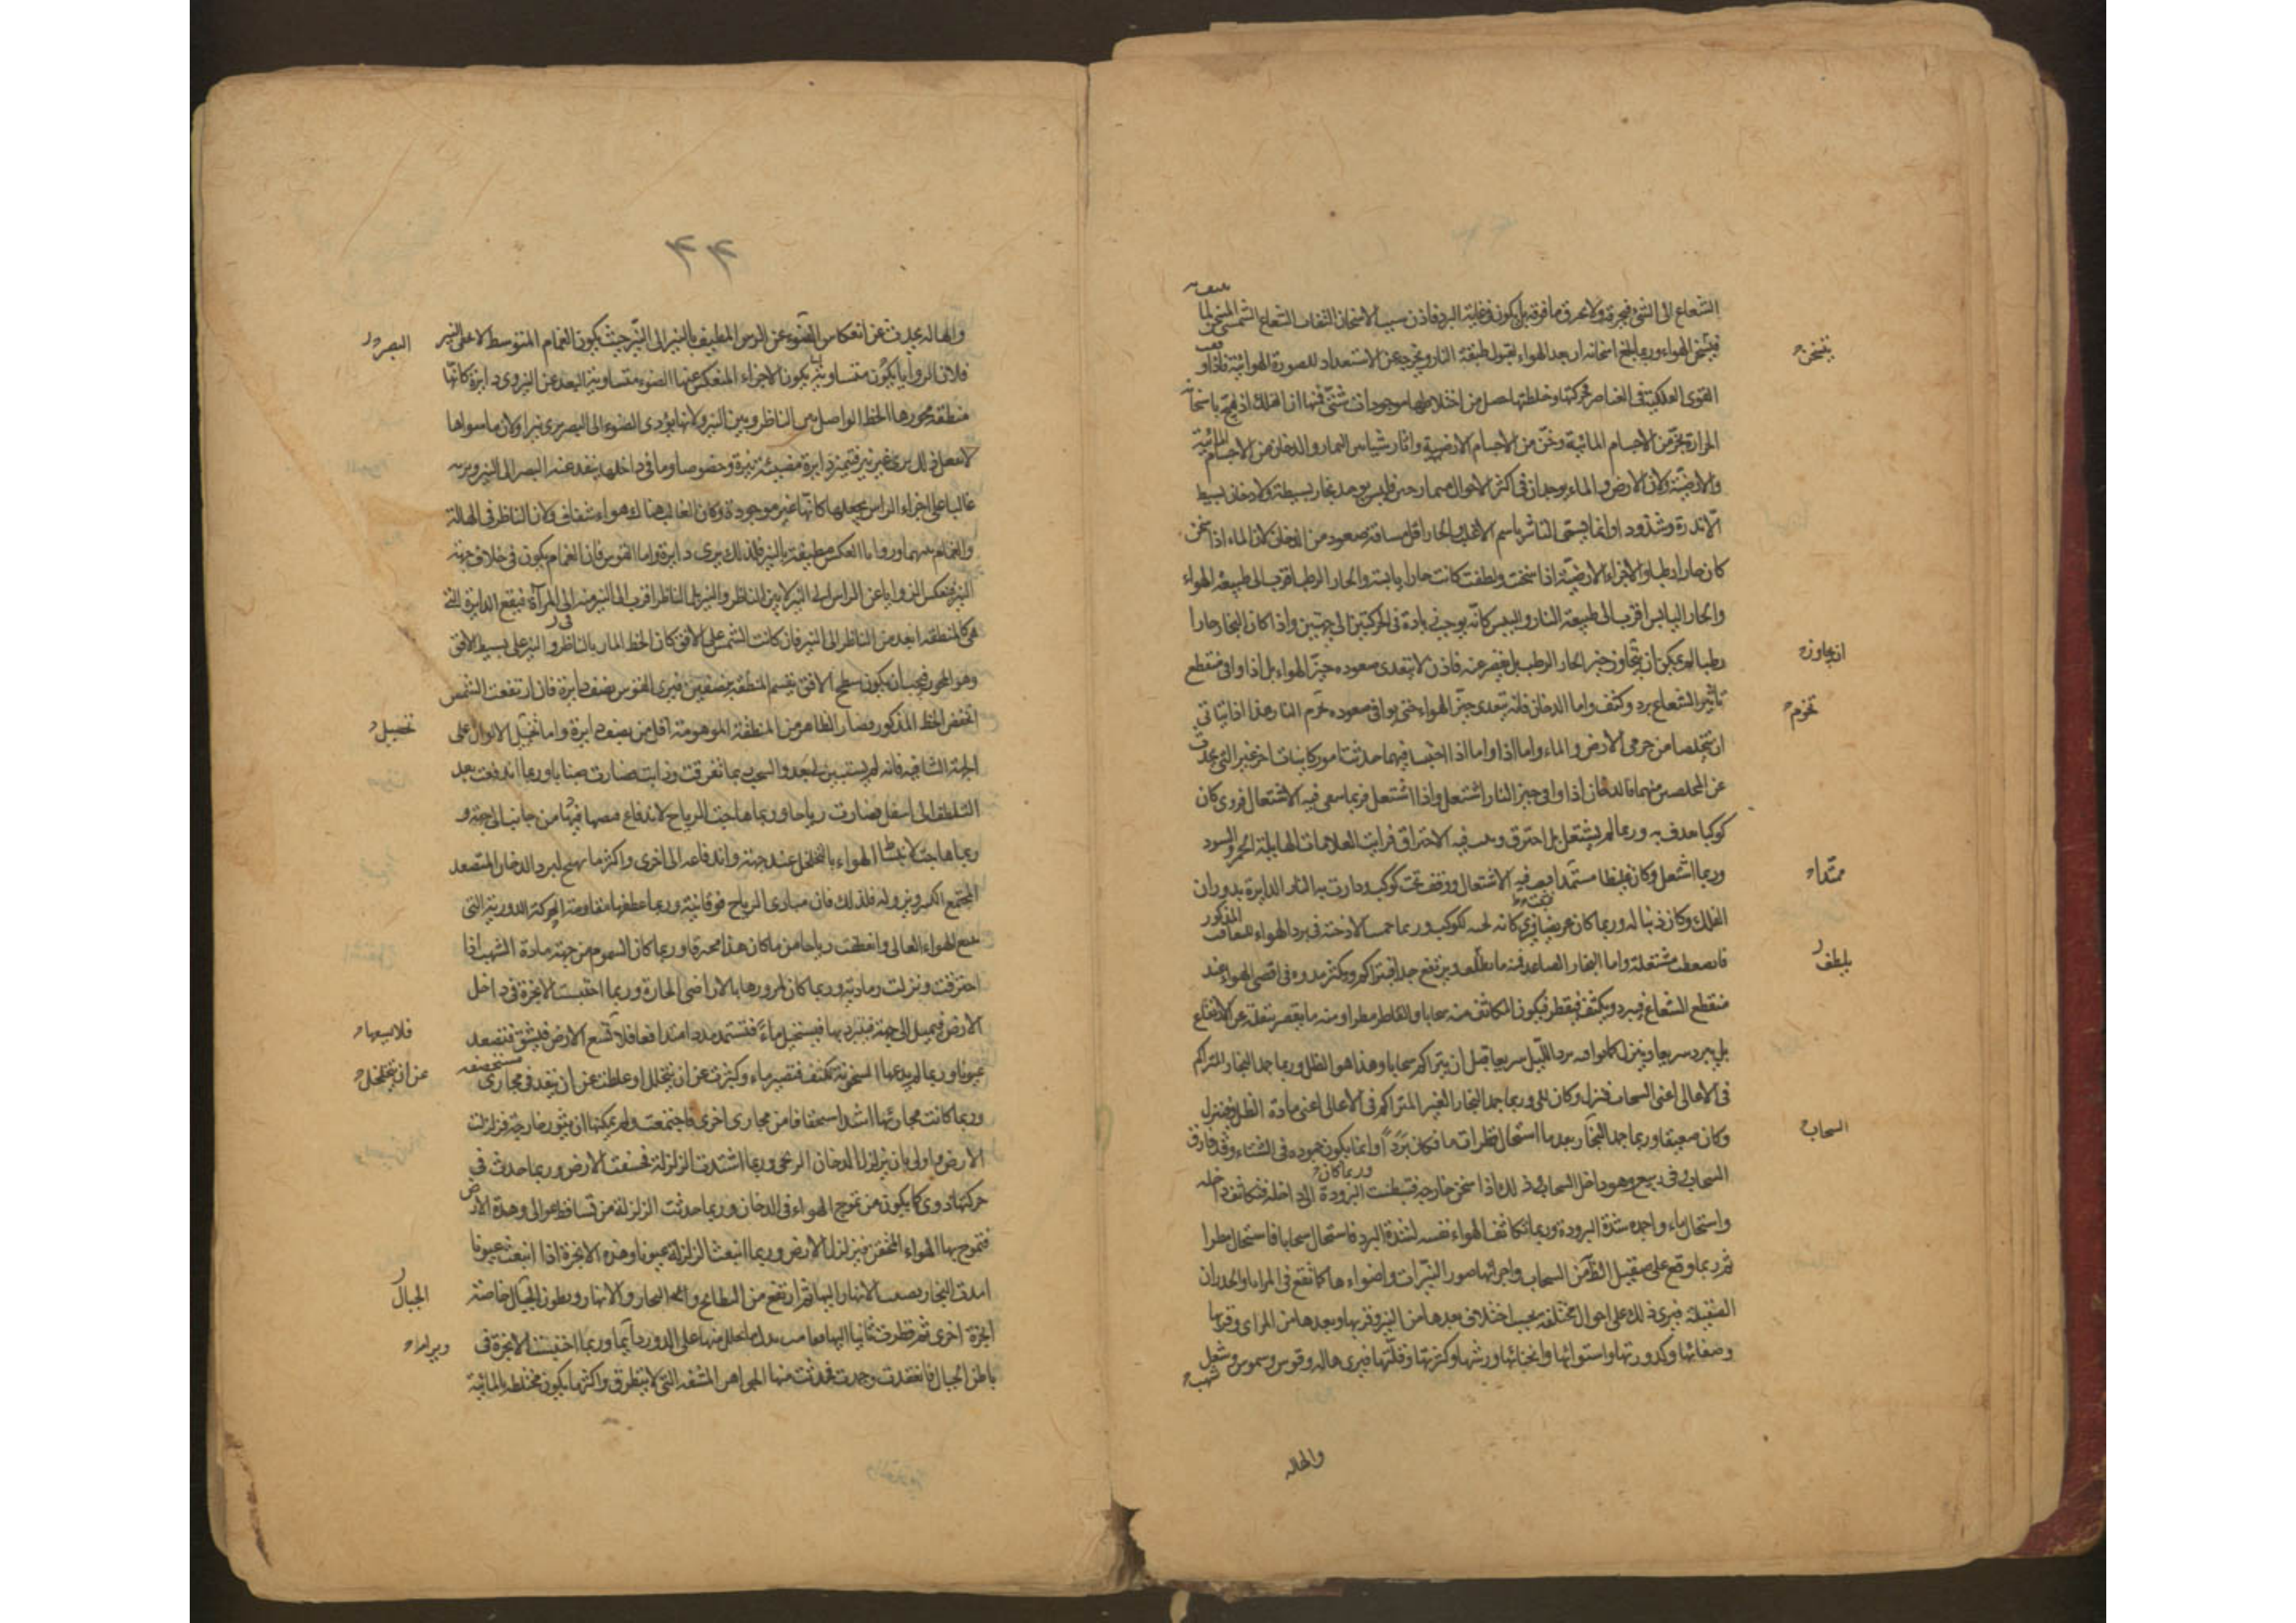 الشعاع الى الشئ فيحرقه ولا يحرق ما فوقه بل يكون في غاية البرد فاذن سبب الاسخان التفاف الشعاع الشمسي المسخن لما
فيتسخن الهواء وربما بلغ اسخانه ان يعد الهواء لقبول طبيعة النار ويخرجه عن الاستعداد للصورة الهوائية فاذا
القوى الفلكية في العناصر فحركتها وخلطتها حصل من اختلاطها موجودات شتى فمنها ان الفلك اذا هيج باسخانه
الحرارة بخر من الاجسام المائية ودخن من الاجسام الارضية واثار شيئا بين البخار والدخان من الاجسام المائية
والارضية ولان الارض والماء يوجدان في اكثر الاحوال فليس يوجد بخار بسيط ولا دخان بسيط
الا ندرة وشذوذا وانما يسمى التاثر باسم الاغلب والبخار اقل مسافة صعود من الدخان لان الماء اذا سخن
كان حارا رطبا والاجزاء الارضية اذا سخنت ولطفت كانت حارة يابسة والحار الرطب اقرب الى طبيعة الهواء
والحار اليابس اقرب الى طبيعة النار واليبس كانه يوجب زيادة في الحركتين الى جهتين واذا كان البخار حارا
رطبا لم يمكن ان يتجاوز حيز الحار الرطب بل يقصر عنه فاذن لا يتعدى صعوده حيز الهواء بل اذا وافى منقطع
تاثير الشعاع برد وكثف واما الدخان فانه يتعدى حيز الهواء حتى يوافى صعوده تخرم النار هذا اذا تاتى
ان تتخلصا من جرمى الارض والماء واما اذا احتبسا فيهما حدثت امور كاينات اخر غير التى تحدث
عن المتخلصين منهما فالدخان اذا وافى حيز النار اشتعل واذا اشتعل فربما سعى فيه الاشتعال فروى كان
كوكبا حذف به وربما لم يشتعل بل احترق فيه الاحتراق فرايت العلامات الهايلة الحمر والسود
وربما اشتعل وكان غليظا مستمدا فيه الاشتعال ووقف تحت كوكب ودارت به النار الدايرة بدوران
الفلك وكان ذنبا له وربما كان عريضا فرؤى كانه لحية لكوكب وربما الادخنة في برد الهواء المذكور
فانضغطت مشتعلة واما البخار الصاعد فمنه ما يلطف ويرتفع جدا فيتراكم ويكثر مدده في اقصى الهواء عند
منقطع الشعاع فيبرد ويكثف فيقطر فيكون المكاثف منه سحابا والقاطر مطرا ومنه ما يقصر بثقله عن الارتفاع
بل يبرد سريعا وينزل كما يوافيه برد الليل سريعا قبل ان يتراكم سحابا وهذا هو الطل وربما جمد البخار المتراكم
في الاعالى اعنى السحاب فنزل وكان ثلجا وربما جمد البخار الغير المتراكم في الاعالى اعنى مادة الطل فنزل
وكان صقيعا وربما جمد البخار بعد ما استحال قطرات ماء فكان بردا وانما يكون جموده في الشتاء وقد فارق
السحاب وفى ربيع وهو داخل السحاب وذلك اذا سخن خارجه فبطنت البرودة الى داخله فتكاثف داخله
واستحال ماء واجمده شدة البرودة وربما تكاثف الهواء نفسه لشدة البرد فاستحال سحابا فاستحال مطرا
ثم ربما وقع على صقيل الظاهر من السحاب واجزائها صور النيرات واضواءها كما تقع في المرايا والجدران
الصقيلة فيرى ذلك على احوال مختلفة بحسب اختلاف بعدها من النير وقربها وبعدها من المرائى وقربها
وصفائها وكدورتها واستوائها وكثرتها وقلتها فيرى هاله وقوس وشموس وشهب
يتسخن
ان يجاوز
تخرم
ممتدا
يلطف
السحاب
وربما كان
والهاله
۴۴
والهاله يحدث عن انعكاس الضوء عن الرش المطيف بالنير الى النير حيث يكون الغمام المتوسط لا على النير
فلان الزوايا تكون متساوية يكون الاجزاء المنعكس عنها الضوء متساوية البعد عن النير وى دايرة كانها
منطقة محورها الخط الواصل بين الناظر وبين النير ولانها يؤدى الضوء الى البصر يرى نيرا ولان ما سواها
لا يفعل ذلك يرى غير نير فتميز دايرة مضيئة نيرة وخصوصا وما في داخلها ينفذ عنه البصر الى النير ويريه
غالبا على اجزاء الراس يجعلها كانها غير موجودة وكان الغالب هناك هواء شفاف ولان الناظر في الهالة
والغمام بينهما وزوايا العكس مطيفة بالنير فلذلك يرى دايرة واما القوس فان الغمام يكون في خلاف جهة
النير فتنعكس الزوايا عن الراس الى النير لا بين الناظر والنير بل الناظر اقرب الى النير منه الى المرآة فيقع الدايرة التى
هى كالمنطقة ابعد من الناظر الى النير فان كانت الشمس على الافق كان الخط المار بالناظر والنير على بسيط الافق
وهو المحور فيجب ان يكون سطح الافق يقسم المنطقة بنصفين فيرى القوس نصف دايرة فان ارتفعت الشمس
انخفض الخط المذكور فصار الظاهر من المنطقة الموهومة اقل من نصف دايرة واما تخيل الالوان على
الجهة الشافية فانه لم يستبن لى بعد والسحب ربما تفرقت وذابت فصارت ضبابا وربما اندفعت بعد
التلطف الى اسفل فصارت رياحا وربما هاجت الرياح لاندفاع فيها من جانب الى جهة و
ربما هاجت لانبساط الهواء بالتخلخل عند جهة واندفاعه الى اخرى واكثر ما يهيج لبرد الدخان المتصعد
المجتمع الكثير ونزوله فلذلك فان مبادى الرياح فوقانية وربما عطفها مقاومة الحركة الدورية التى
تتبع الهواء العالى فانعطفت رياحا من ما كان هذا محرقا وربما كان السموم من جهة مادة الشهب اذا
احترقت ونزلت رمادية وربما كان لمرورها بالاراضى الحارة وربما احتبست الابخرة في داخل
الارض فيميل الى جهة فتبرد بها فيستحيل ماء فتستمد مددا متدافعا فلا تسع الارض فينشق فتصعد
عيونا وربما لم يدعها السخونة تكثف فتصير ماء وكثرت عن ان يتخلل او غلظت عن ان ينفذ في مجارى مستحصفة
وربما كانت مجاريها اشد استحصافا من مجارى اخرى فاجتمعت ولم يمكنها ان يثور خارجة فزلزلت
الارض واولى بان يزلزل الدخان الريحى وربما اشتدت الزلزلة فخسفت الارض وربما حدث في
حركتها دوى كما يكون من تموج الهواء في الدخان وربما حدثت الزلزلة من تساقط عوالى وهدة الارض
فتموج بها الهواء المحتقن فيزلزل الارض وربما انبعث الزلزلة عيونا وهذه الابخرة اذا انبعثت عيونا
امدت البحار بصب الانهار اليها ثم ارتفع من البطايح والبحار والانهار وبطون الجبال خاصة
ابخرة اخرى ثم قطرت ثانيا اليها منها على الدور دايما وربما احتبست الابخرة في
باطن الجبال فانعقدت وجمدت فحدثت منها الجواهر المشفة التى لا ينطرق واكثرها يكون مختلطة المائية
البصر
تخييل
فلا يسعها
عن ان يتخلخل
الجبال